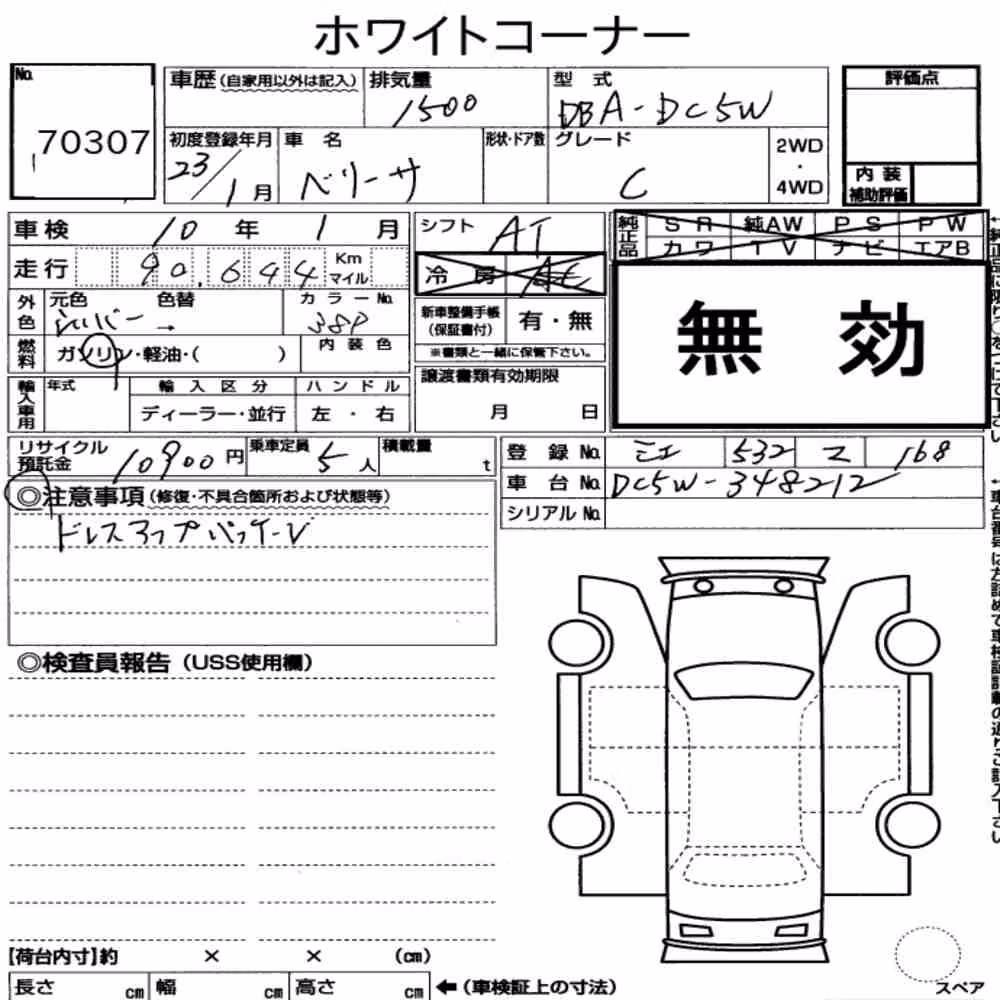 ホワイトコーナー
No. 70307
車歴(自家用以外は記入)
排気量 1500
型式 DBA-DC5W
評価点
初度登録年月 23/1月
車名 ベリーサ
形状・ドア数
グレード C
2WD・4WD
内装補助評価
車検 10年 1月
シフト AT
純正品 SR 純AW PS PW
カワ TV ナビ エアB
走行 90,644 Km マイル
冷房 AC
無効
外色 元色 シルバー → 色替
カラーNo. 38P
新車整備手帳(保証書付) 有・無
※書類と一緒に保管下さい。
燃料 ガソリン・軽油・( )
内装色
輸入車用 年式 輸入区分 ハンドル
ディーラー・並行 左・右
譲渡書類有効期限
月 日
リサイクル預託金 10900円
乗車定員 5人
積載量 t
登録No. 532 168
車台No. DC5W-348212
シリアルNo.
◎注意事項(修復・不具合箇所および状態等)
ドレスアップパッケージ
◎検査員報告(USS使用欄)
【荷台内寸】約 × × (cm)
長さ cm 幅 cm 高さ cm ←(車検証上の寸法)
スペア
車台番号は左詰めで車検証記載の通りご記入下さい